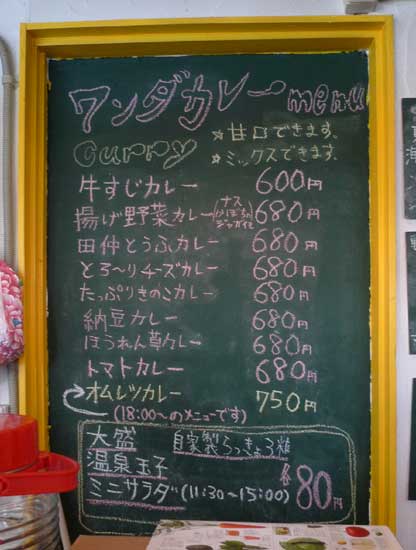 ワンダカレーmenu
☆甘口できます。
Curry ☆ミックスできます。
牛すじカレー 600円
揚げ野菜カレー(ナス かぼちゃ ジャガイモ) 680円
田仲とうふカレー 680円
とろ〜りチーズカレー 680円
たっぷりきのこカレー 680円
納豆カレー 680円
ほうれん草カレー 680円
トマトカレー 680円
オムレツカレー 750円
(18:00〜のメニューです)
大盛 自家製らっきょう3粒
温泉玉子
ミニサラダ(11:30〜15:00) 各80円